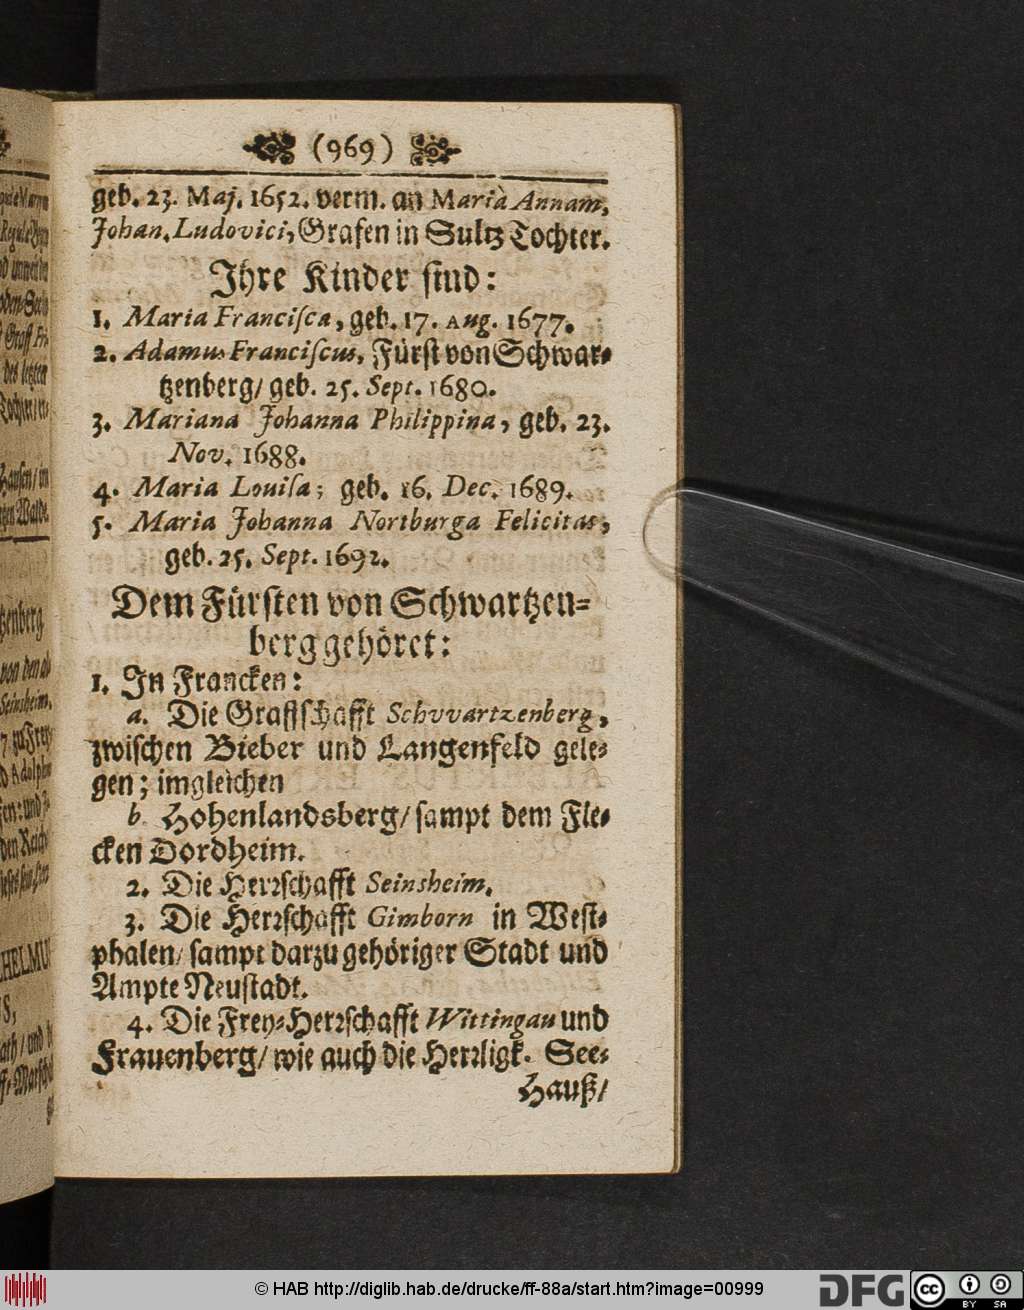 (969)
geb. 23. Maj. 1652. verm. an Marià Annam,
Johan. Ludovici, Grafen in Sultz Tochter.
Ihre Kinder sind:
1. Maria Franciſca, geb. 17. Aug. 1677.
2. Adamus Franciſcus, Fürſt von Schwar⸗
tzenberg/ geb. 25. Sept. 1680.
3. Mariana Johanna Philippina, geb. 23.
Nov. 1688.
4. Maria Louiſa; geb. 16. Dec. 1689.
5. Maria Johanna Nortburga Felicitas,
geb. 25. Sept. 1692.
Dem Fürſten von Schwartzen⸗
berg gehöret:
1. In Francken:
a. Die Graffſchafft Schvvartzenberg,
zwiſchen Bieber und Langenfeld gele⸗
gen; imgleichen
b. Hohenlandsberg/ ſampt dem Fle⸗
cken Dordheim.
2. Die Herrſchafft Seinsheim.
3. Die Herrſchafft Gimborn in Weſt⸗
phalen/ ſampt darzu gehöriger Stadt und
Ampte Neuſtadt.
4. Die Frey⸗Herrſchafft Wittingau und
Frauenberg/ wie auch die Herrligk. See⸗
Hauß/
© HAB http://diglib.hab.de/drucke/ff-88a/start.htm?image=00999
DFG
cc BY SA